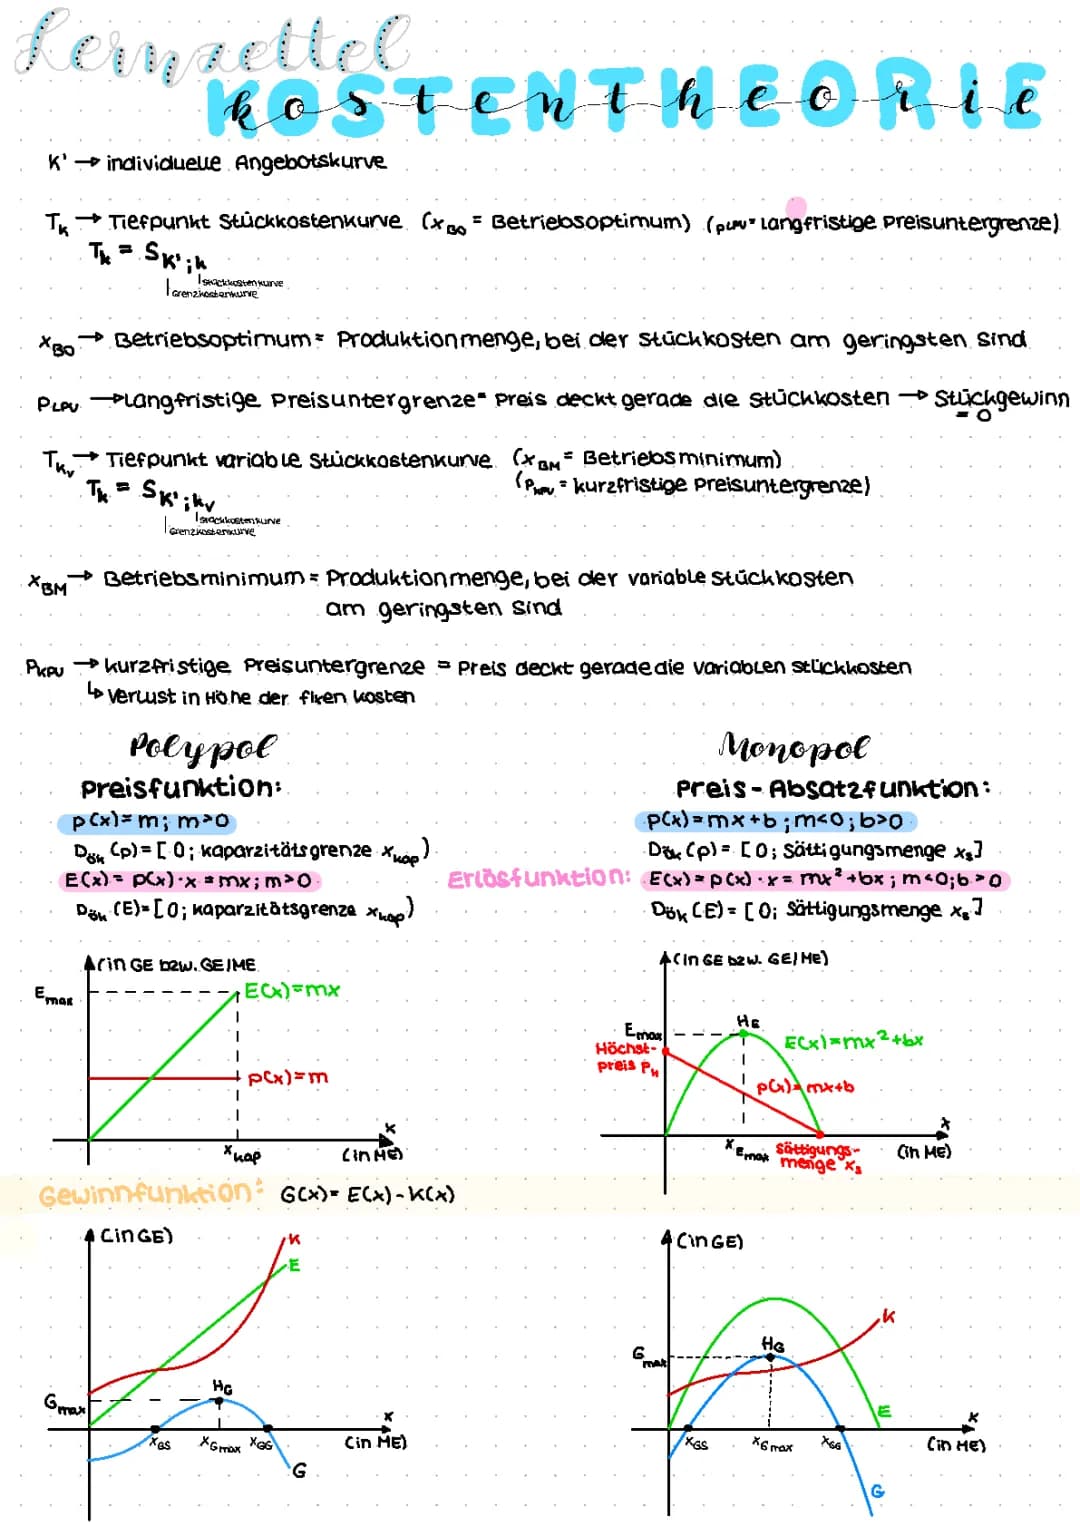 Lernzettel
KOSTENTHEORIE
kostentheorie
K' → individuelle Angebotskurve
T_k → Tiefpunkt Stückkostenkurve (x_BO = Betriebsoptimum) (p_LPU = Langfristige Preisuntergrenze)
T_k = S_K';k
Stückkostenkurve
Grenzkostenkurve
x_BO → Betriebsoptimum = Produktionmenge, bei der Stückkosten am geringsten sind
P_LPU → Langfristige Preisuntergrenze = Preis deckt gerade die Stückkosten → Stückgewinn = 0
T_kv → Tiefpunkt variable Stückkostenkurve (x_BM = Betriebsminimum)
(P_KPU = kurzfristige Preisuntergrenze)
T_k = S_K';kv
Stückkostenkurve
Grenzkostenkurve
x_BM → Betriebsminimum = Produktionmenge, bei der variable Stückkosten
am geringsten sind
P_KPU → kurzfristige Preisuntergrenze = Preis deckt gerade die variablen Stückkosten
↳ Verlust in Höhe der fixen Kosten
Polypol
Monopol
Preisfunktion:
Preis-Absatzfunktion:
p(x) = m; m>0
p(x) = mx+b; m<0; b>0
D_ök (p) = [0; kaparzitätsgrenze x_kap)
D_ök (p) = [0; Sättigungsmenge x_s]
E(x) = p(x)·x = mx; m>0
Erlösfunktion: E(x) = p(x)·x = mx²+bx; m<0; b>0
D_ök (E) = [0; kaparzitätsgrenze x_kap)
D_ök (E) = [0; Sättigungsmenge x_s]
(in GE bzw. GE/ME
(in GE bzw. GE/ME)
E_max
E(x)=mx
p(x)=m
x_kap
x
(in ME)
E_max
Höchst-
preis P_H
H_E
E(x)=mx²+bx
p(x)=mx+b
x_Emax
Sättigungs-
menge x_s
x
(in ME)
Gewinnfunktion: G(x) = E(x) - K(x)
(in GE)
K
E
G_max
H_G
x_GS
x_Gmax
x_GG
x
(in ME)
G
(in GE)
K
G_max
H_G
E
x_GS
x_Gmax
x_GG
x
(in ME)
G